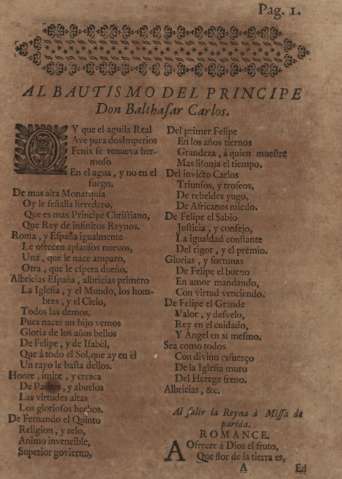 Pag. 1.
AL BAUTISMO DEL PRINCIPE
Don Balthasar Carlos.
Y que el aguila Real
Ave para dos Imperios
Fenix se renueva her-
moso
En el agua, y no en el
fuego.
De mas alta Monarquia
Oy le señala heredero,
Que es mas Principe Christiano,
Que Rey de infinitos Reynos.
Roma, y España igualmente
Le ofrecen aplausos nuevos,
Una, que le nace amparo,
Otra, que le espera dueño.
Albricias España, albricias primero
La Iglesia, y el Mundo, los hom-
bres, y el Cielo,
Todos las demos.
Pues nacer un hijo vemos
Gloria de los años bellos
De Felipe, y de Isabel,
Que à todo el Sol, que ay en él
Un rayo le basta dellos.
Honre, imite, y crezca
De Padres, y abuelos
Las virtudes altas
Los gloriosos hechos.
De Fernando el Quinto
Religion, y zelo,
Animo invencible,
Superior govierno,
Del primer Felipe
En los años tiernos
Grandeza, à quien muestre
Mas lisonja el tiempo.
Del invicto Carlos
Triunfos, y trofeos,
De rebeldes yugo,
De Africanos miedo.
De Felipe el Sabio
Justicia, y consejo,
La igualdad constante
Del rigor, y el premio.
Glorias, y fortunas
De Felipe el bueno
En amor mandando,
Con virtud venciendo.
De Felipe el Grande
Valor, y desvelo,
Rey en el cuidado,
Y Angel en si mesmo.
Sea como todos
Con divino esfuerço
De la Iglesia muro
Del Herege freno.
Albricias, &c.
Al salir la Reyna à Missa de
parida.
ROMANCE.
A Ofrecer à Dios el fruto,
Que flor de la tierra es,
A Ed